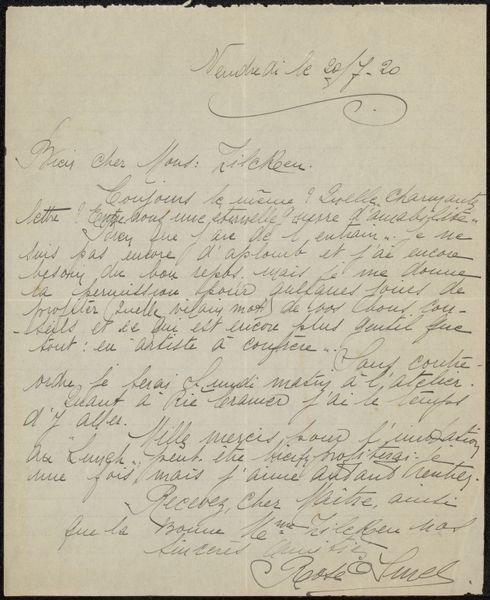 Vendredi le 20/7-20
cher Mons: Zilcken.
Toujours le même! Quelle charmante
lettre! Entre nous une éternelle guerre d'amabilités"
que j'aie de l'entrain". Je ne
suis pas encore d'aplomb et j'ai encore
besoin du bon repos. mais je me donne
la permission pour quelques jours de
profiter (quelle vilain mot) de vos bons con-
-seils et ce qui est encore plus gentil que
tout: en artiste à confrère".
Sans contre-
ordre je serai Lundi matin à l'atelier.
Quant à Rie Cramer j'ai le temps
d'y aller.
Mille mercis pour l'invitation
au "Lunch". peut être
une fois, mais j'aime autant rentrer.
Recevez, cher Maître, ainsi
que la Bonne Mme Zilcken nos
sincères amitiés
Rose